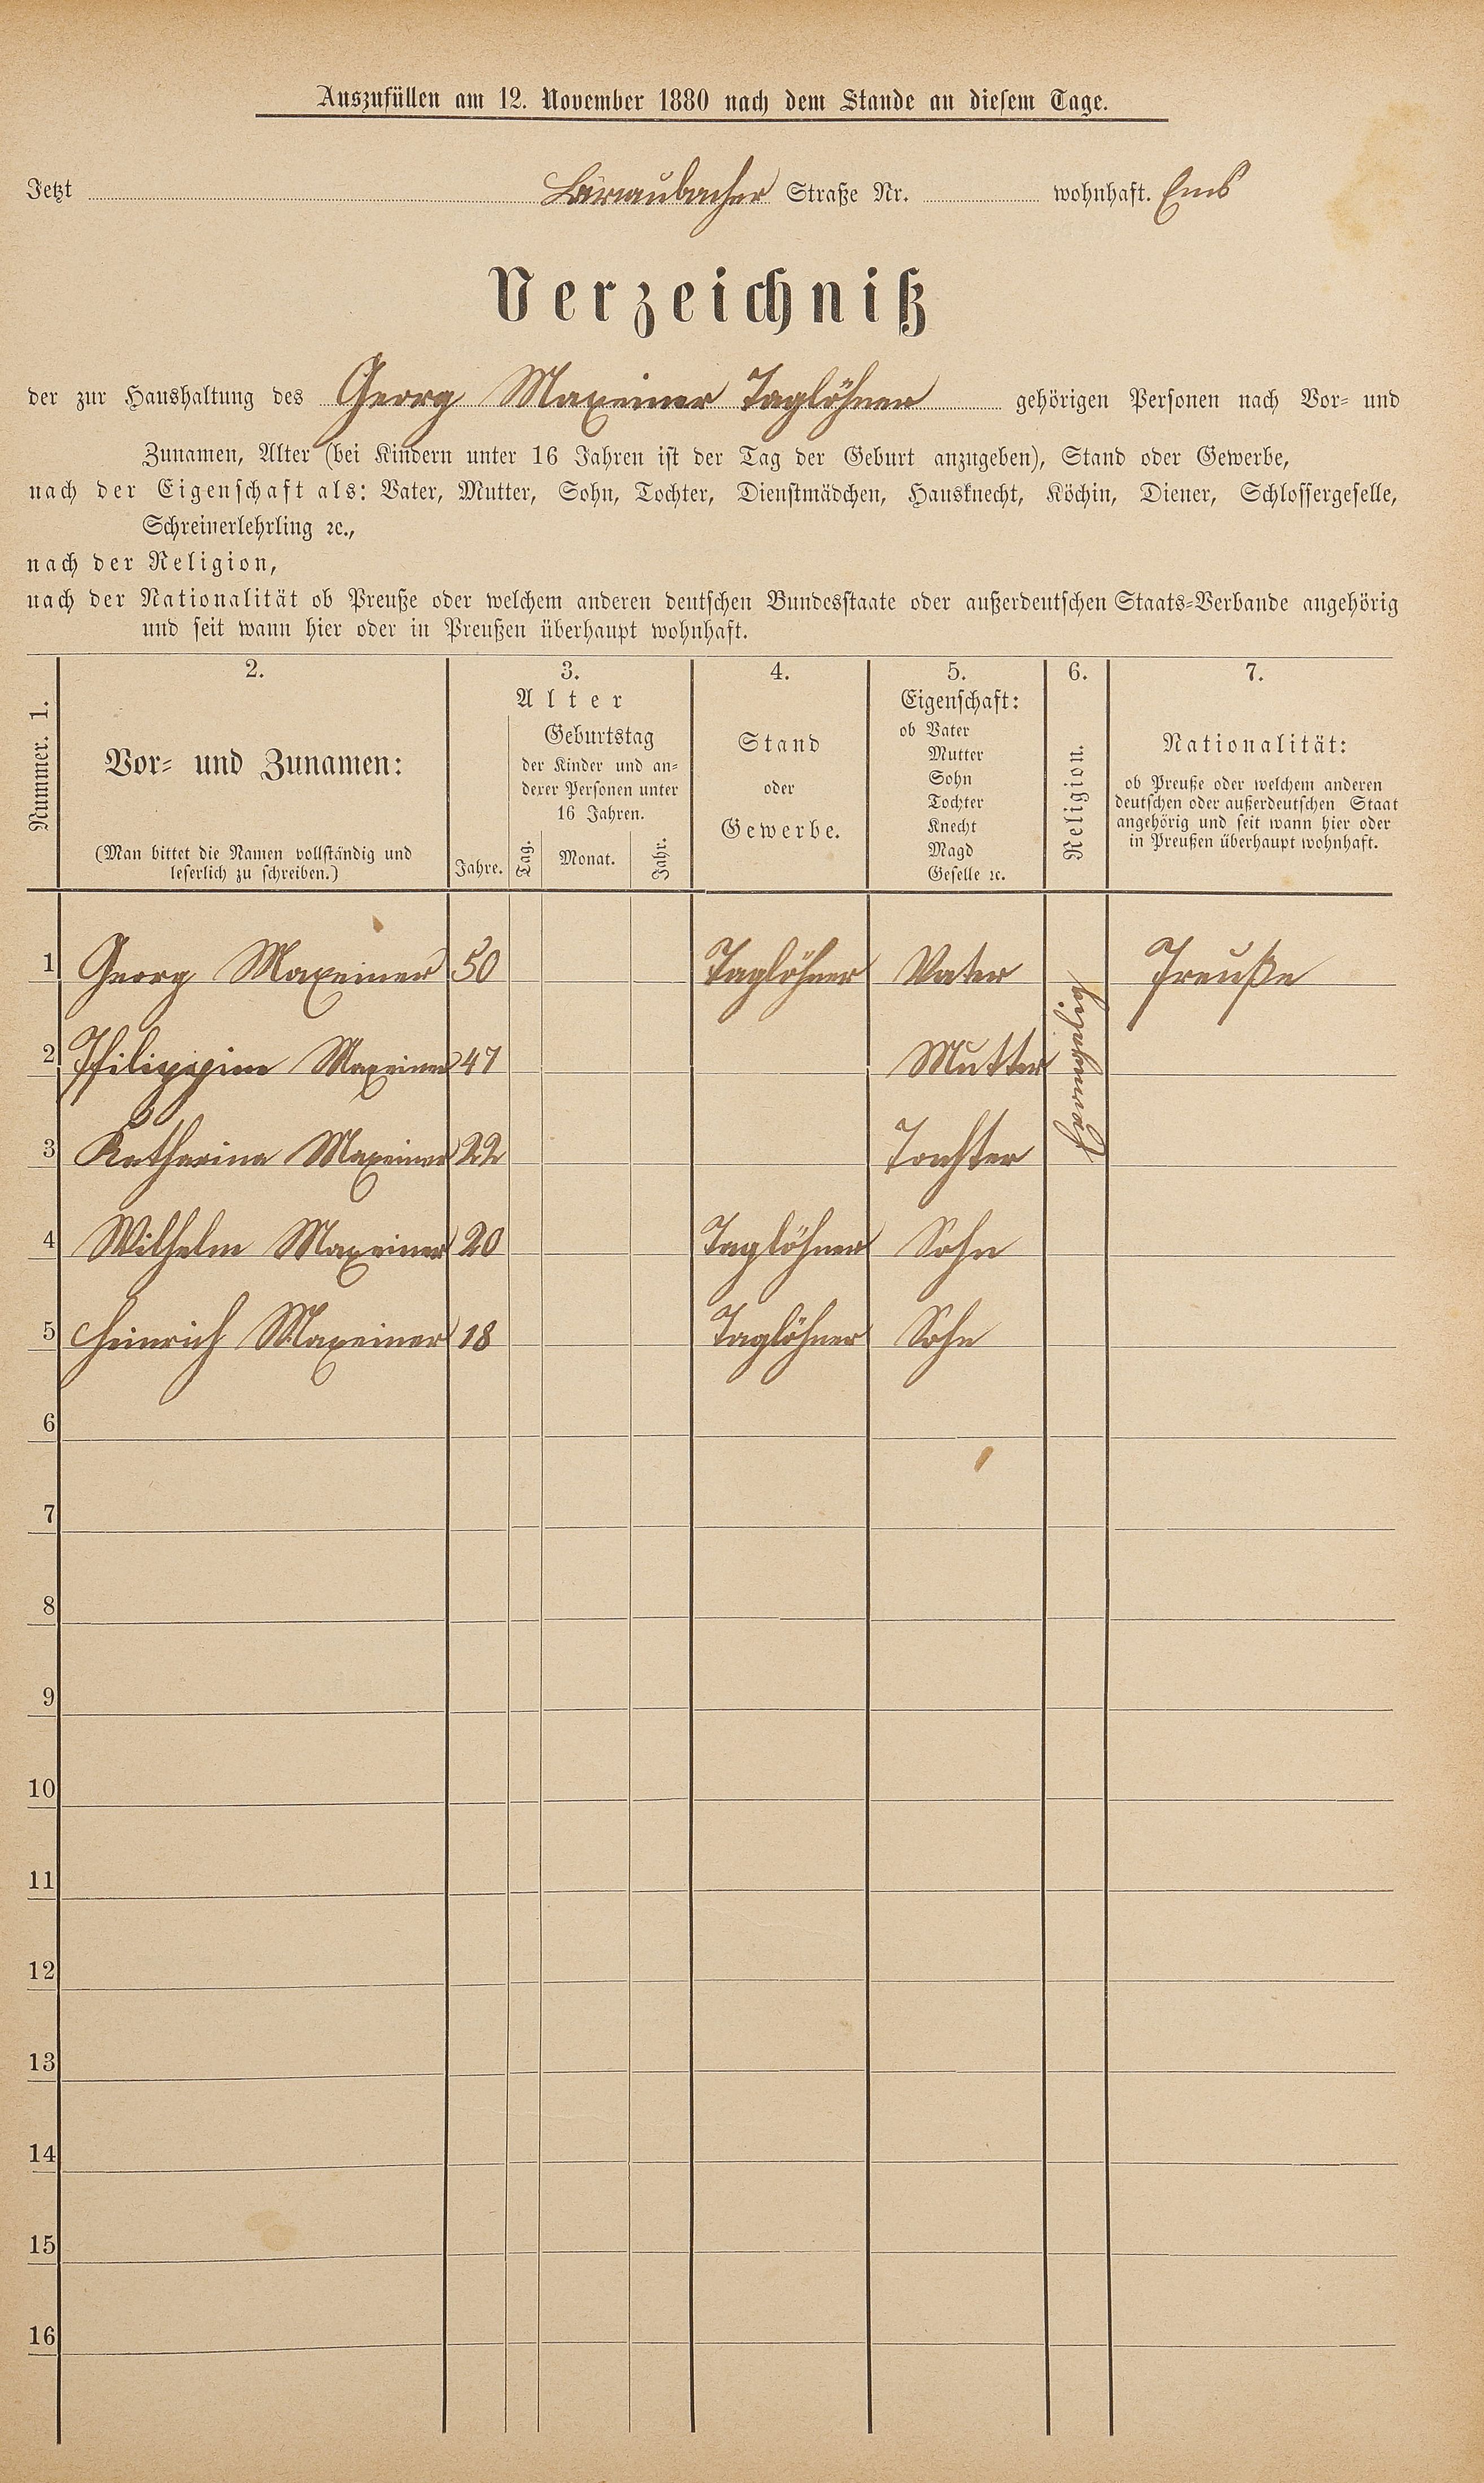 Auszufüllen am 12. November 1880 nach dem Stande an diesem Tage.
Jetzt Straße Nr. wohnhaft. Ems
Verzeichniß
der zur Haushaltung des Georg Maxeiner Taglöhner gehörigen Personen nach Vor- und
Zunamen, Alter (bei Kindern unter 16 Jahren ist der Tag der Geburt anzugeben), Stand oder Gewerbe,
nach der Eigenschaft als: Vater, Mutter, Sohn, Tochter, Dienstmädchen, Hausknecht, Köchin, Diener, Schlossergeselle,
Schreinerlehrling ꝛc.,
nach der Religion,
nach der Nationalität ob Preuße oder welchem anderen deutschen Bundesstaate oder außerdeutschen Staats-Verbande angehörig
und seit wann hier oder in Preußen überhaupt wohnhaft.
Nummer. 1.
2.
Vor- und Zunamen:
(Man bittet die Namen vollständig und
leserlich zu schreiben.)
3.
Alter
Jahre.
Geburtstag
der Kinder und an-
derer Personen unter
16 Jahren.
Tag. Monat. Jahr.
4.
Stand
oder
Gewerbe.
5.
Eigenschaft:
ob Vater
Mutter
Sohn
Tochter
Knecht
Magd
Geselle ꝛc.
6.
Religion.
7.
Nationalität:
ob Preuße oder welchem anderen
deutschen oder außerdeutschen Staat
angehörig und seit wann hier oder
in Preußen überhaupt wohnhaft.
1 Georg Maxeiner 50 Taglöhner Vater Preuße
2 Philippine Maxeiner 47 Mutter
Evangelisch
3 Katharina Maxeiner 22 Tochter
4 Wilhelm Maxeiner 20 Taglöhner Sohn
5 Heinrich Maxeiner 18 Taglöhner Sohn
6
7
8
9
10
11
12
13
14
15
16